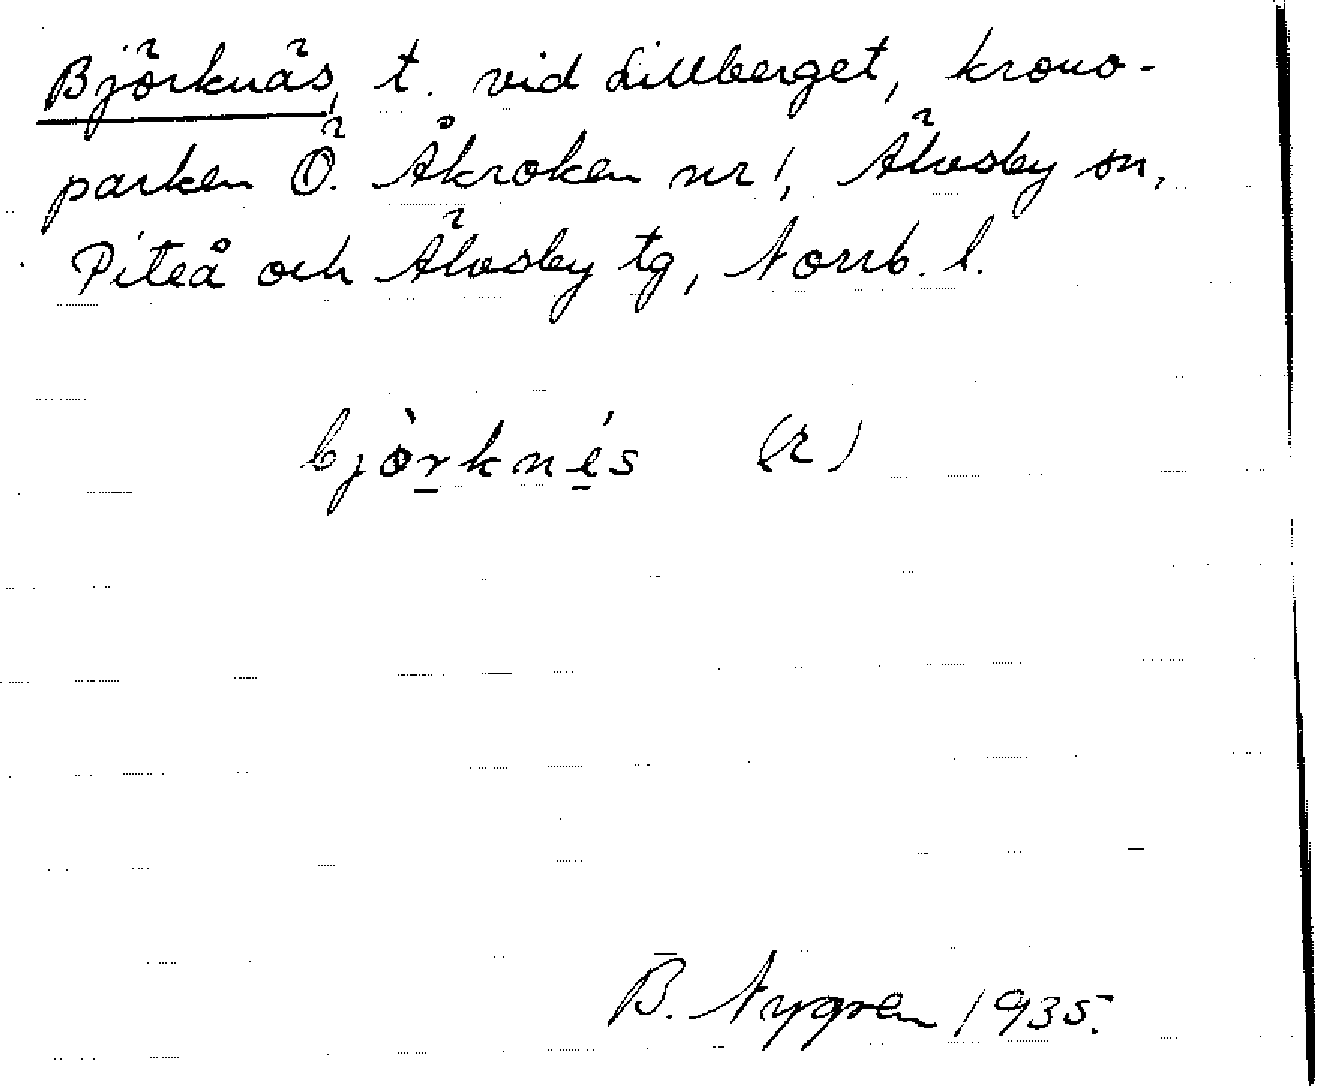 Björknäs, t. vid Lillberget, krono-
parken Ö. Åkroken nr 1, Älvsby sn,
Piteå och Älvsby tg, Norrb. l.
bjò̱rknés (r)
B. Nygren 1935.